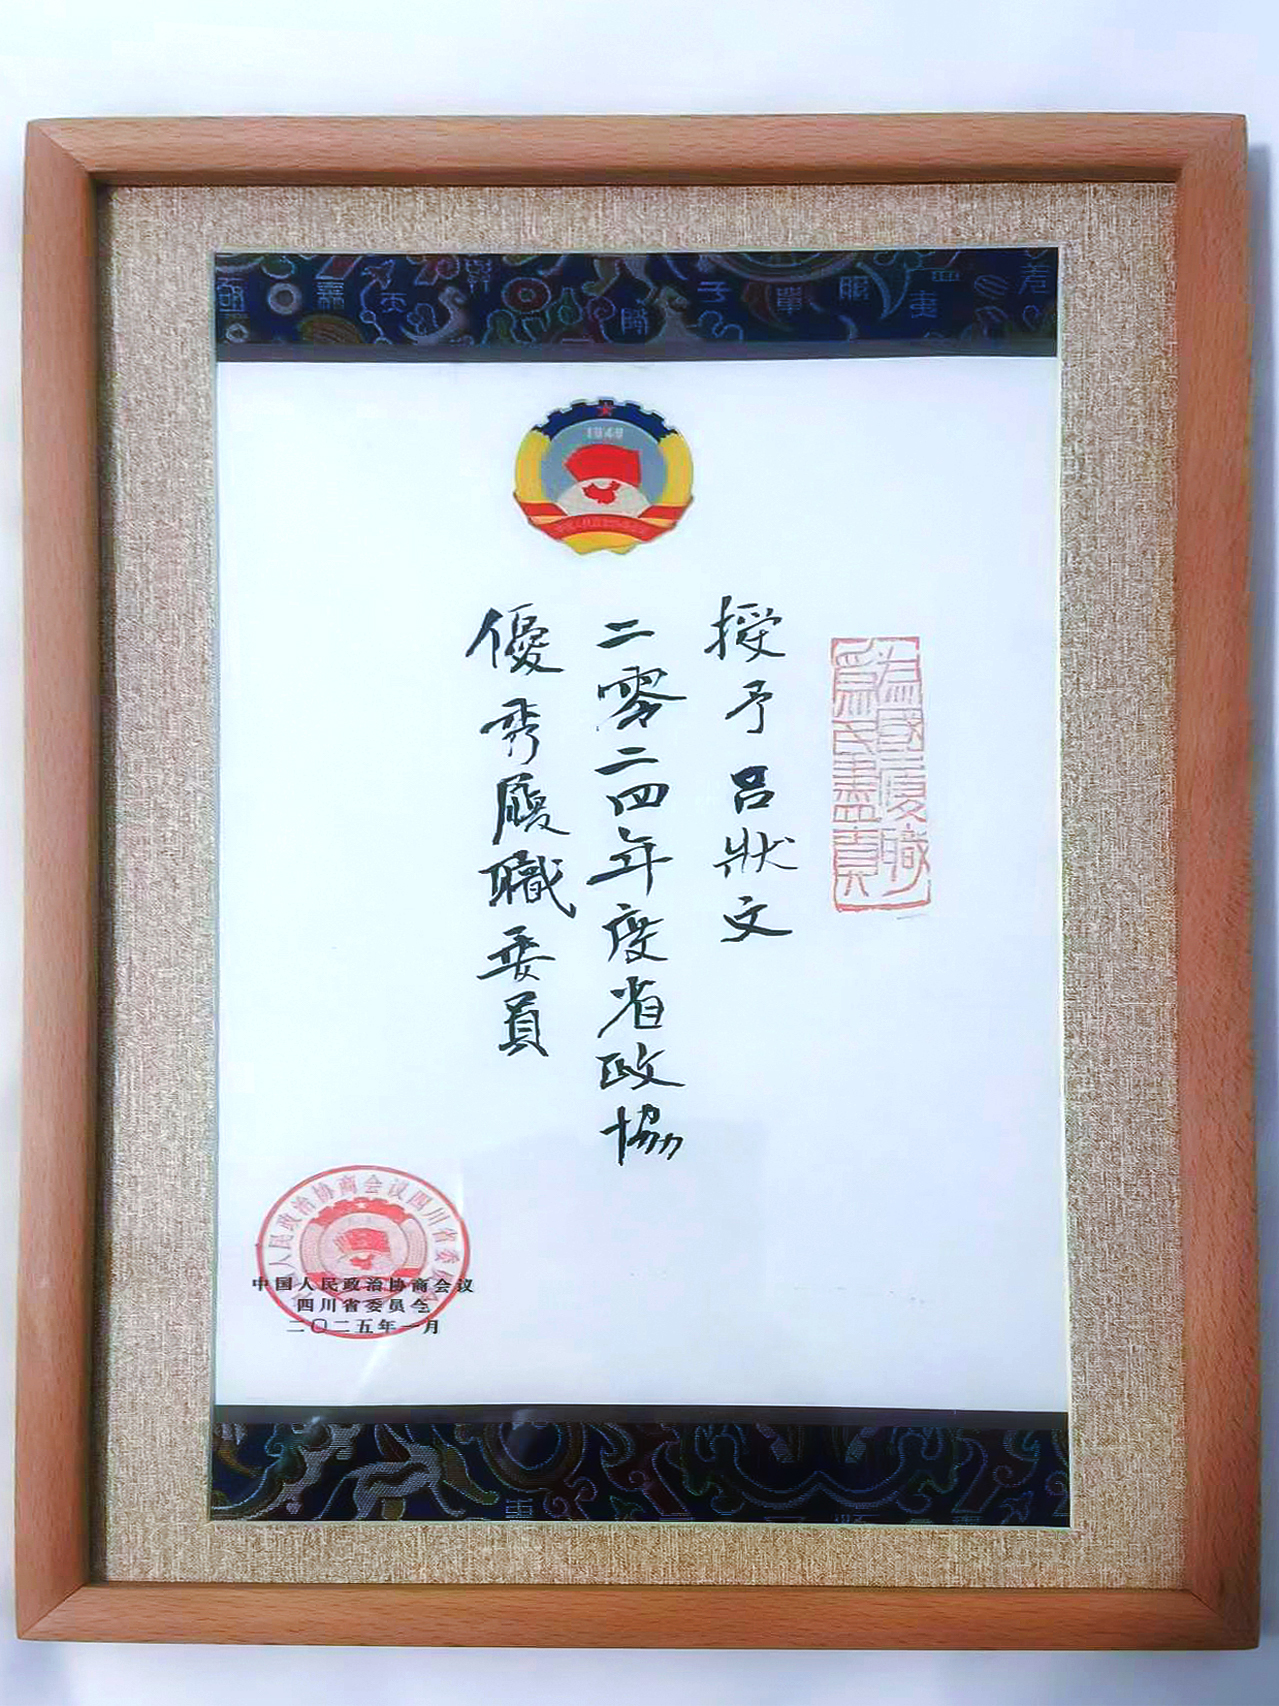 為國履職
為民盡責
授予呂狀文
二零二四年度省政協
優秀履職委員
1949
中国人民政治协商会议四川省委员会
中国人民政治协商会议
四川省委员会
二〇二五年一月